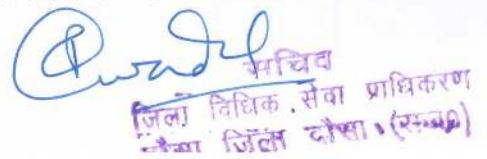 सचिव
जिला विधिक सेवा प्राधिकरण
दौसा जिला दौसा (राज०)